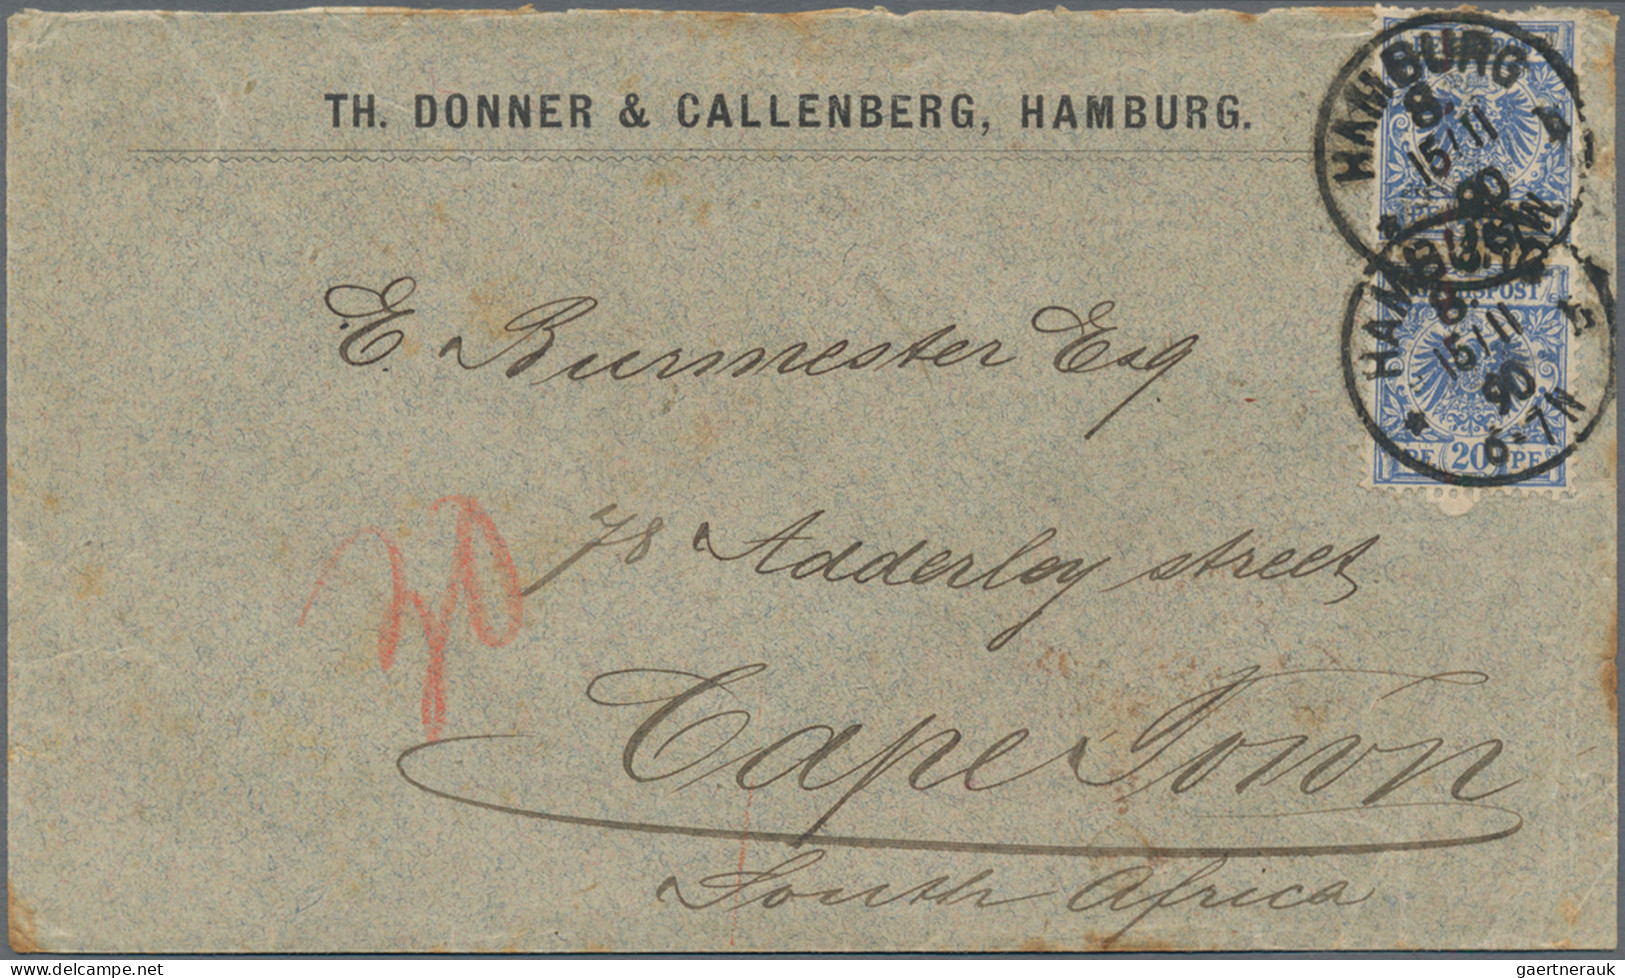 TH. DONNER & CALLENBERG, HAMBURG.
HAMBURG
8.
15/11
90
HAMBURG
8.
15/11
90
6-7N
REICHSPOST
PF 20 PF
E. Burmester Esq
78 Adderley street
Cape Town
South Africa
gaertnerauk